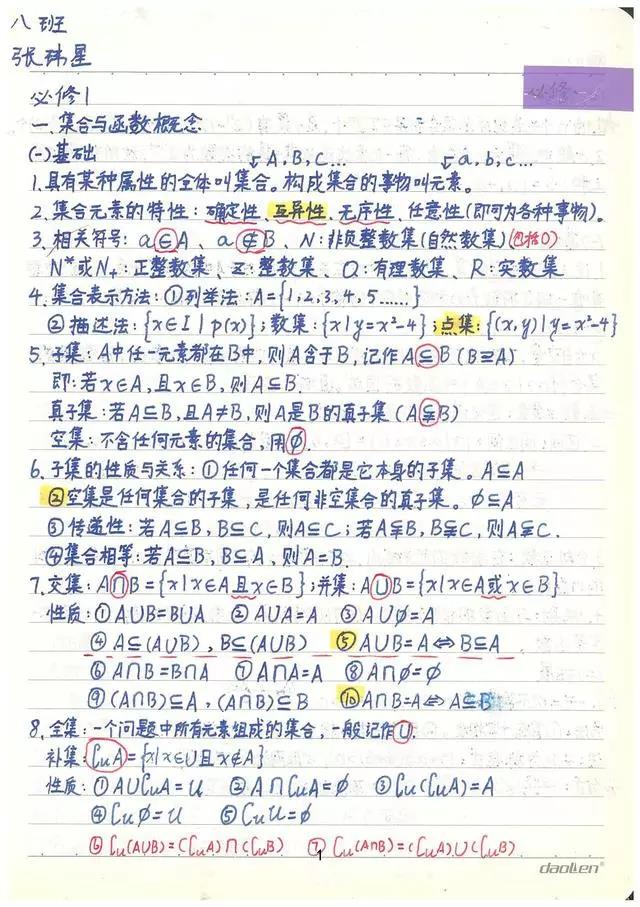 八班
张玮星
必修1
必修一
一、集合与函数概念
(一)基础
↙A,B,C… ↙a,b,c…
1.具有某种属性的全体叫集合。构成集合的事物叫元素。
2.集合元素的特性:确定性、互异性、无序性、任意性(即可为各种事物)。
3.相关符号:a∈A、a∉B、N:非负整数集(自然数集)(包括0)
N*或N+:正整数集、Z:整数集、Q:有理数集、R:实数集
4.集合表示方法:①列举法:A={1,2,3,4,5……}
②描述法:{x∈I|p(x)};数集:{x|y=x²-4};点集:{(x,y)|y=x²-4}
5.子集:A中任一元素都在B中,则A含于B,记作A⊆B(B⊇A)
即:若x∈A,且x∈B,则A⊆B.
真子集:若A⊆B,且A≠B,则A是B的真子集(A⫋B)
空集:不含任何元素的集合,用∅.
6.子集的性质与关系:①任何一个集合都是它本身的子集。A⊆A
②空集是任何集合的子集,是任何非空集合的真子集。∅⊆A
③传递性:若A⊆B,B⊆C,则A⊆C;若A⫋B,B⫋C,则A⫋C.
④集合相等:若A⊆B,B⊆A,则A=B.
7.交集:A∩B={x|x∈A且x∈B};并集:A∪B={x|x∈A或x∈B}
性质:①A∪B=B∪A ②A∪A=A ③A∪∅=A
④A⊆(A∪B),B⊆(A∪B) ⑤A∪B=A⇔B⊆A
⑥A∩B=B∩A ⑦A∩A=A ⑧A∩∅=∅
⑨(A∩B)⊆A,(A∩B)⊆B ⑩A∩B=A⇔A⊆B
8.全集:一个问题中所有元素组成的集合,一般记作U.
补集:∁uA={x|x∈U且x∉A}
性质:①A∪∁uA=U ②A∩∁uA=∅ ③∁u(∁uA)=A
④∁u∅=U ⑤∁uU=∅
⑥∁u(A∪B)=(∁uA)∩(∁uB) ⑦∁u(A∩B)=(∁uA)∪(∁uB)
1
daolien